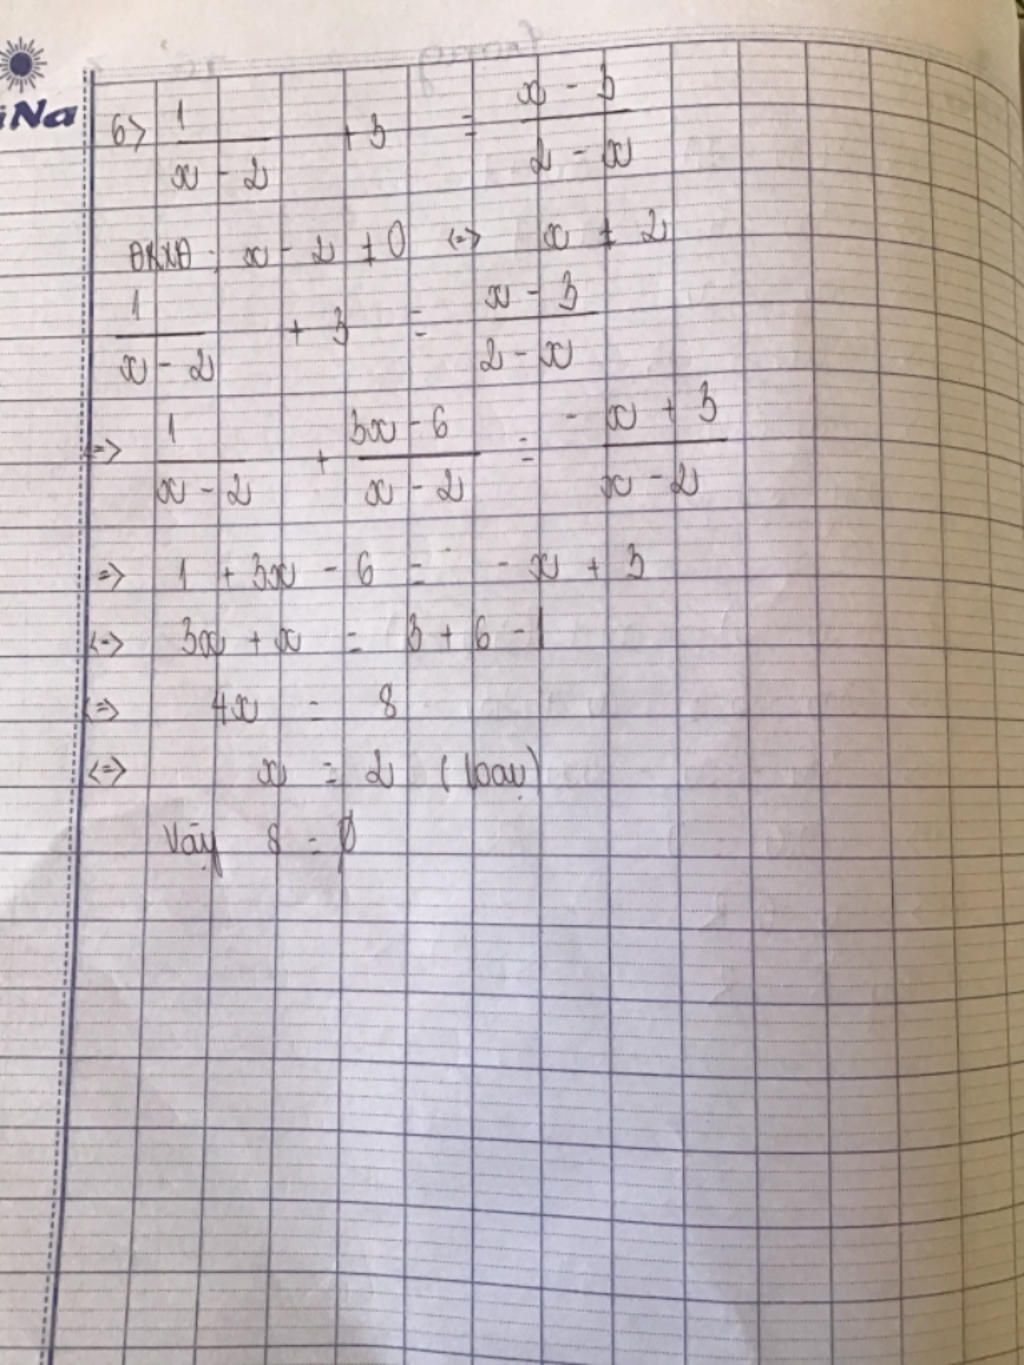 iNa
6> 1/(x - 2) + 3 = (x - 3)/(2 - x)
ĐKXĐ: x - 2 ≠ 0 <=> x ≠ 2
1/(x - 2) + 3 = (x - 3)/(2 - x)
<=> 1/(x - 2) + (3x - 6)/(x - 2) = (- x + 3)/(x - 2)
=> 1 + 3x - 6 = - x + 3
<=> 3x + x = 3 + 6 - 1
<=> 4x = 8
<=> x = 2 (loại)
Vậy S = ∅